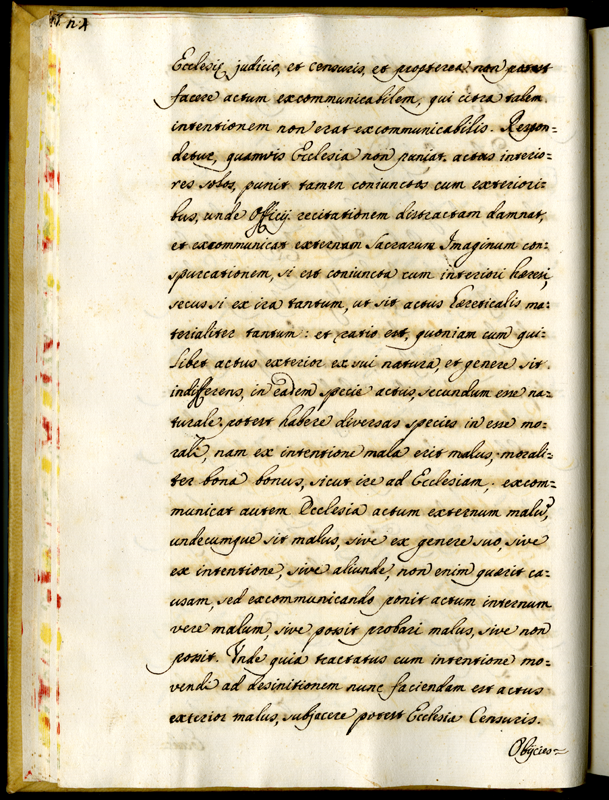 Ecclesię judicio, et censuris, et propterea non potest
facere actum excommunicabilem, qui citra talem
intentionem non erat excommunicabilis. Respon=
detur, quamvis Ecclesia non puniat actus interio=
res solos, punit tamen coniunctos cum exteriori=
bus, unde Officij recitationem distractam damnat,
et excommunicat externam Sacrarum Imaginum con=
spurcationem, si est coniuncta cum interiori hæresi,
secus si ex ira tantum, ut sit actus hæreticalis ma=
terialiter tantum: et ratio est, quoniam cum qui=
libet actus exterior ex sui natura, et genere sit
indifferens, in eadem specie actus, secundum esse na=
turale potest habere diversas species in esse mo=
rali, nam ex intentione mala erit malus, morali=
ter bona bonus, sicut ire ad Ecclesiam, excom=
municat autem Ecclesia actum externum malũ,
undecumque sit malus, sive ex genere suo, sive
ex intentione, sive aliunde, non enim quærit ca=
usam, sed excommunicando ponit actum internum
vere malum, sive possit probari malus, sive non
possit. Unde quia tractatus cum intentione mo=
vendi ad desinitionem nunc faciendam est actus
exterior malus, subjacere potest Ecclesia Censuris.
Obijcies=